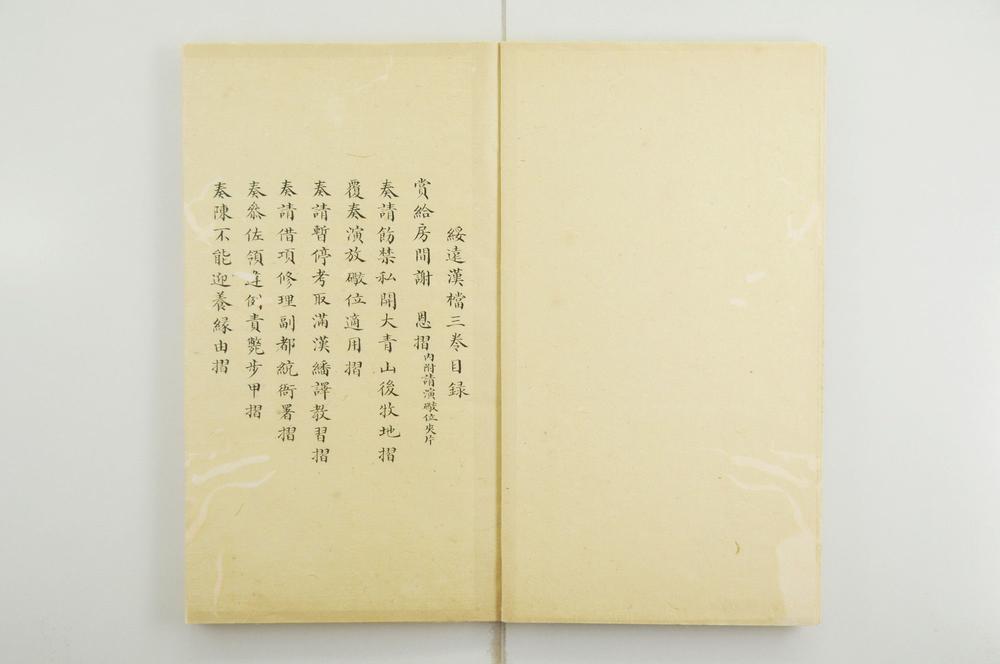 綏遠漢檔三卷目録
賞給房間謝 恩摺內附請演礮位夾片
奏請飭禁私開大青山後牧地摺
覆奏演放礮位適用摺
奏請暫停考取滿漢繙譯教習摺
奏請借項修理副都統衙署摺
奏叅佐領違例責斃步甲摺
奏陳不能迎養縁由摺